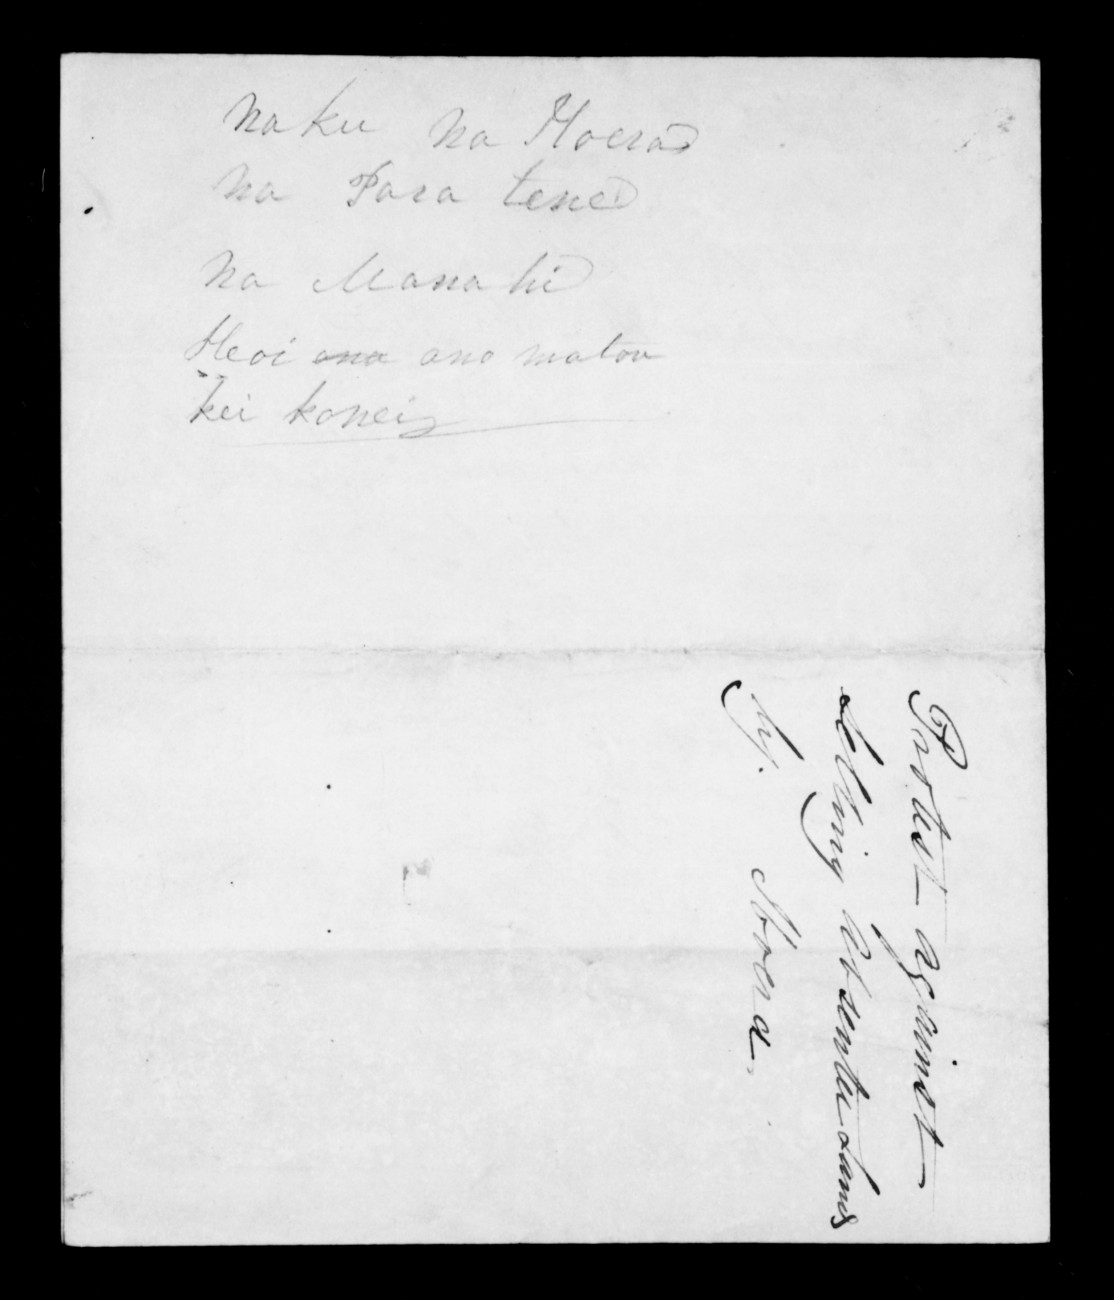 naku na Hoera
na Para tene
na Manahi
Heoi ana ano matou
kei konei
Protest against
letting Absentee Lands
by. Hoera.